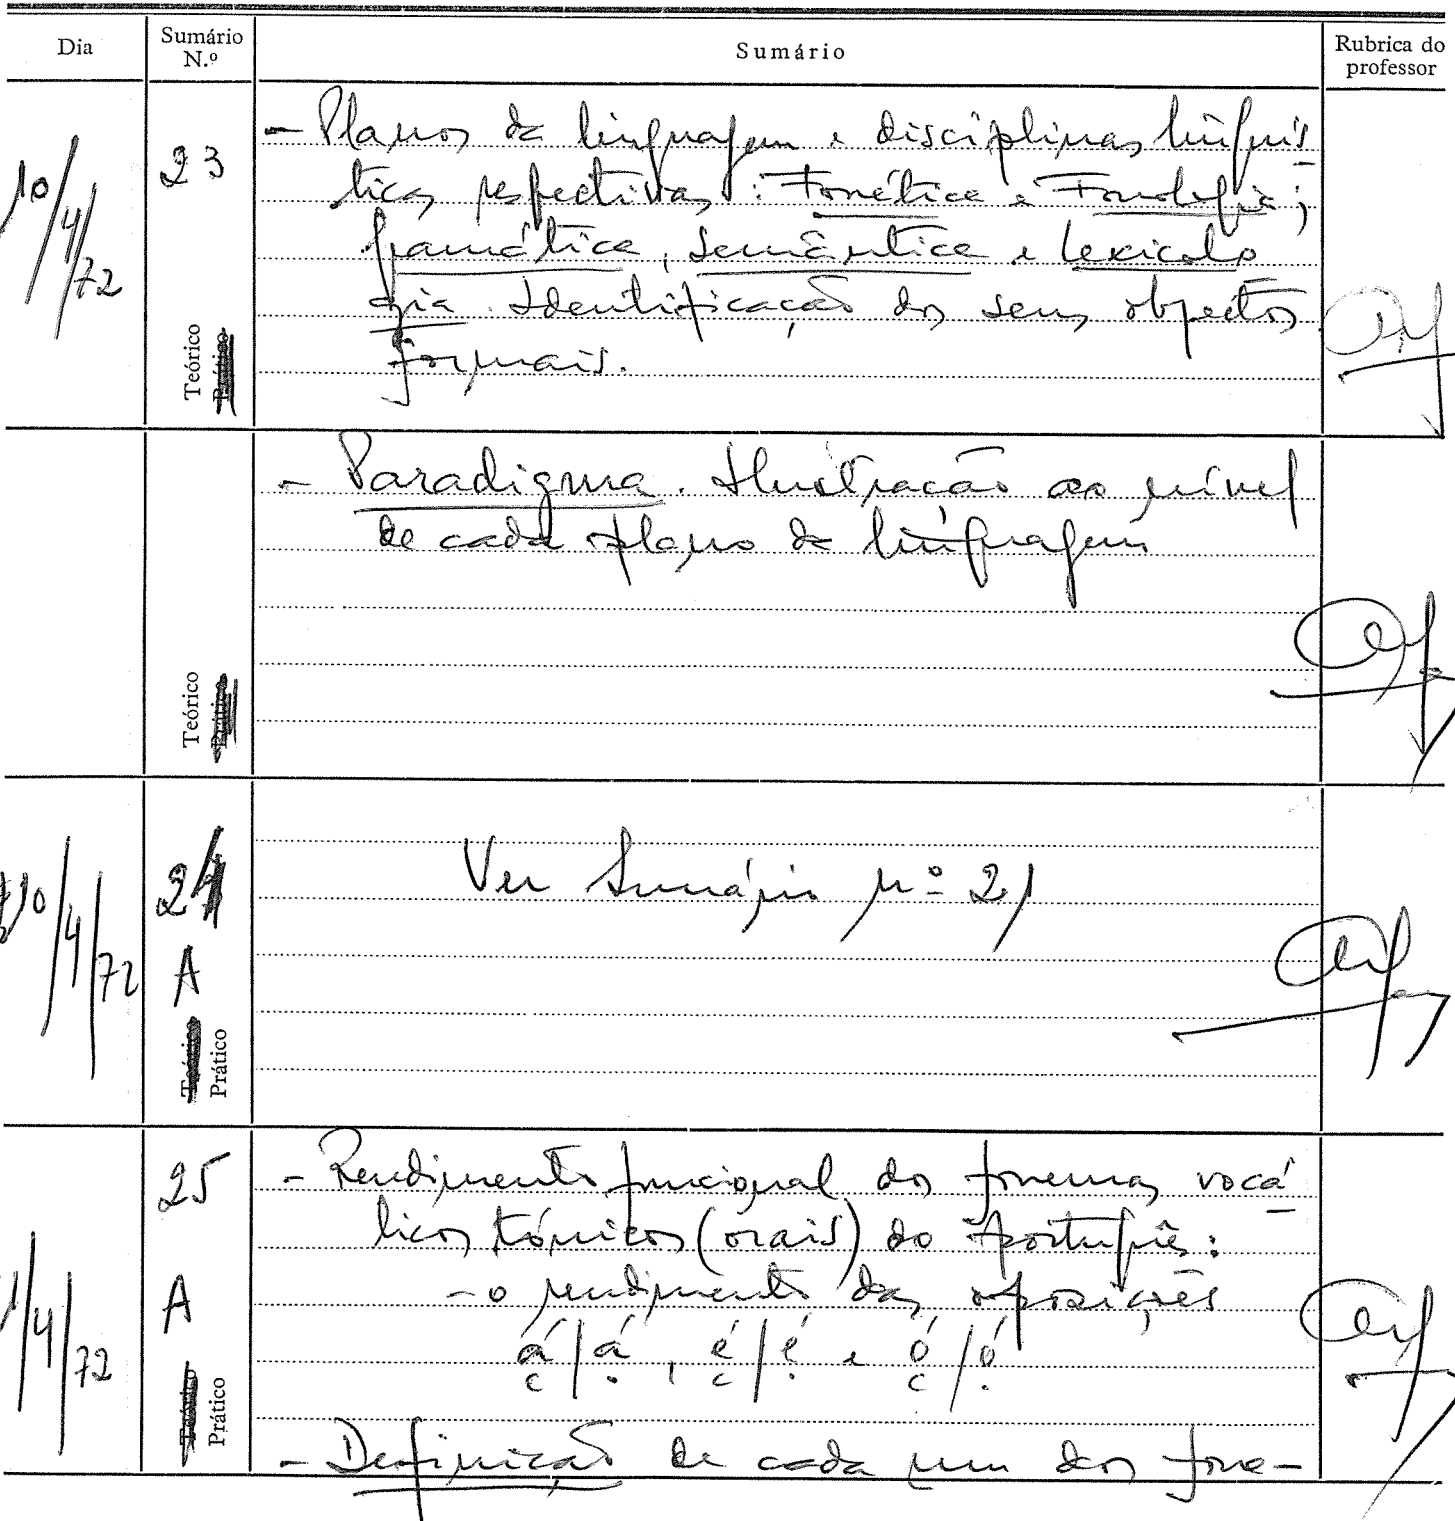 Dia
Sumário N.º
Sumário
Rubrica do professor
10/4/72
23
Teórico
- Planos da linguagem e disciplinas linguís-
ticas respectivas: Fonética e Fonologia;
gramática, semântica e lexicolo
gia. Identificação dos seus objectos
formais.
Teórico
- Paradigma. Ilustração ao nível
de cada plano da linguagem
10/4/72
24
A
Prático
Ver Sumário nº 21
25
A
/4/72
Prático
- Rendimento funcional dos fonemas vocá-
licos tónicos (orais) do Português:
- o rendimento das oposições
á/á, é/é e ó/ó
- Definição de cada um dos fone-